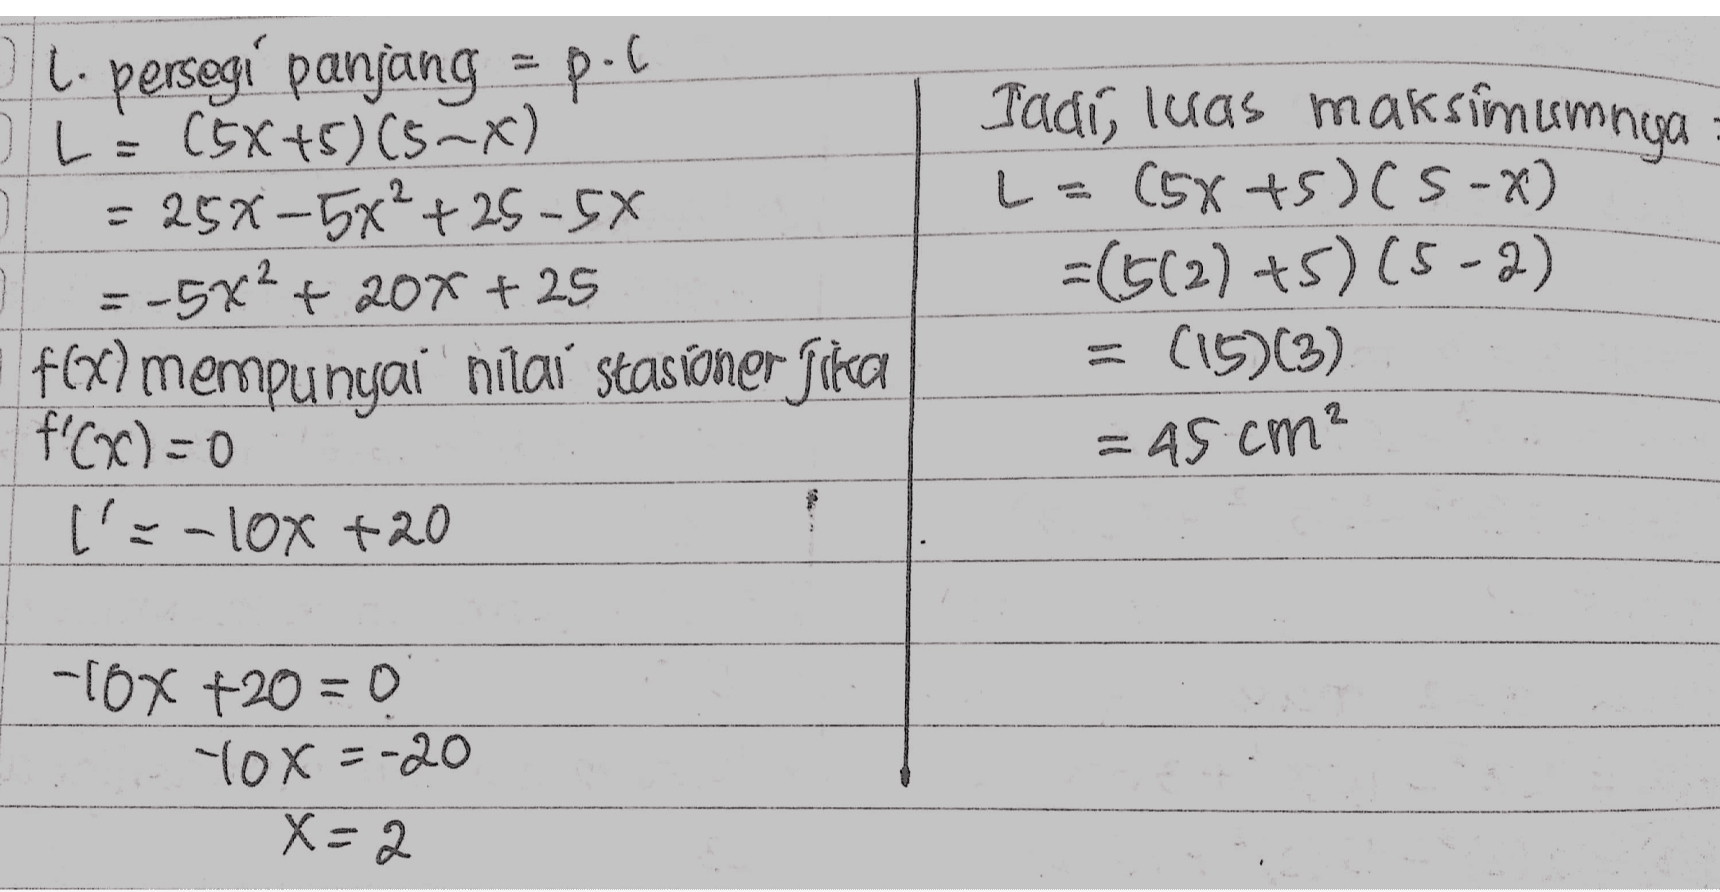 L. persegi panjang = p.l
L = (5x+5)(5-x)
= 25x-5x²+25-5x
= -5x²+20x+25
f(x) mempunyai nilai stasioner jika
f'(x)=0
L' = -10x +20
-10x +20 = 0
-10x = -20
x = 2
Jadi, luas maksimumnya :
L = (5x+5)(5-x)
=(5(2)+5)(5-2)
= (15)(3)
= 45 cm²